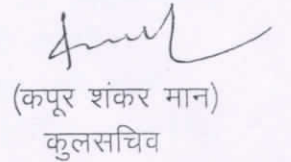 (कपूर शंकर मान)
कुलसचिव